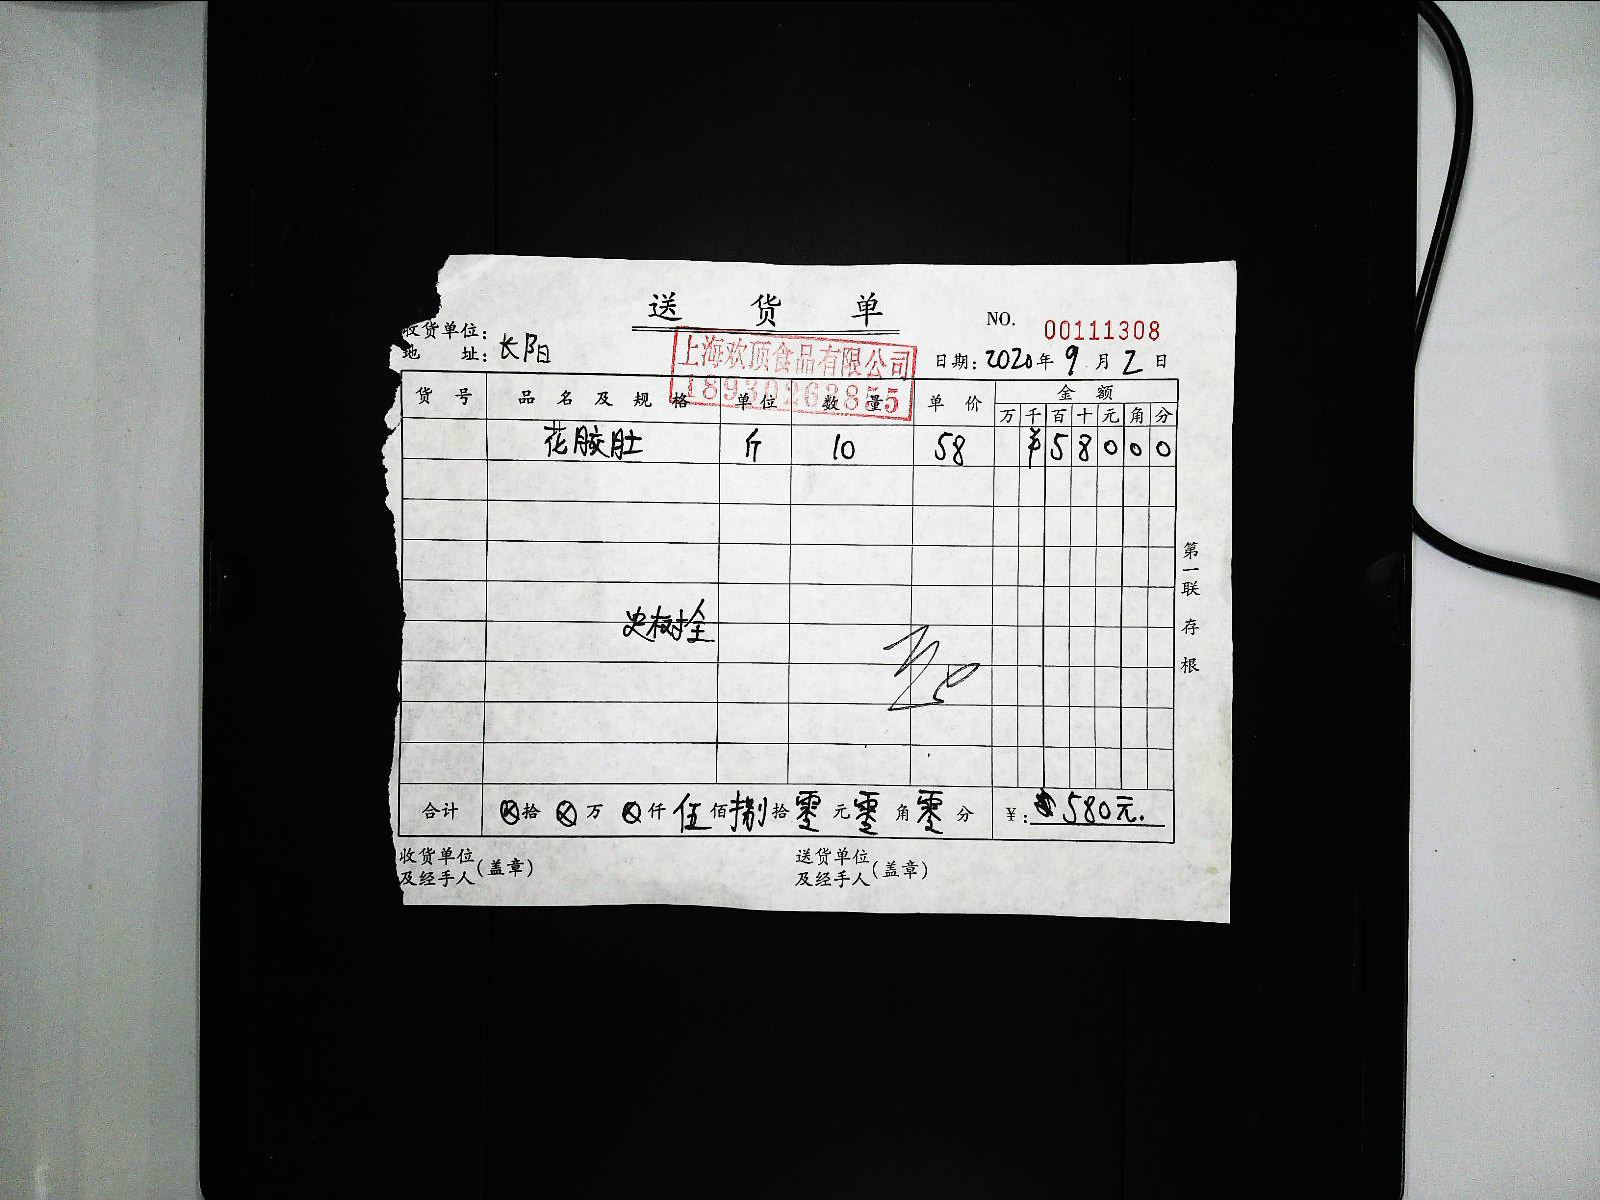 送货单
NO. 00111308
收货单位:
地址: 长阳
日期: 2020年9月2日
上海欢顶食品有限公司
货号 品名及规格 单位 数量 单价 金额
万 千 百 十 元 角 分
花胶肚 斤 10 58 ¥ 5 8 0 0 0
史树拴
第一联 存根
合计 ⊗拾⊗万⊗仟伍佰捌拾零元零角零分 ¥: 580元.
收货单位及经手人(盖章)
送货单位及经手人(盖章)